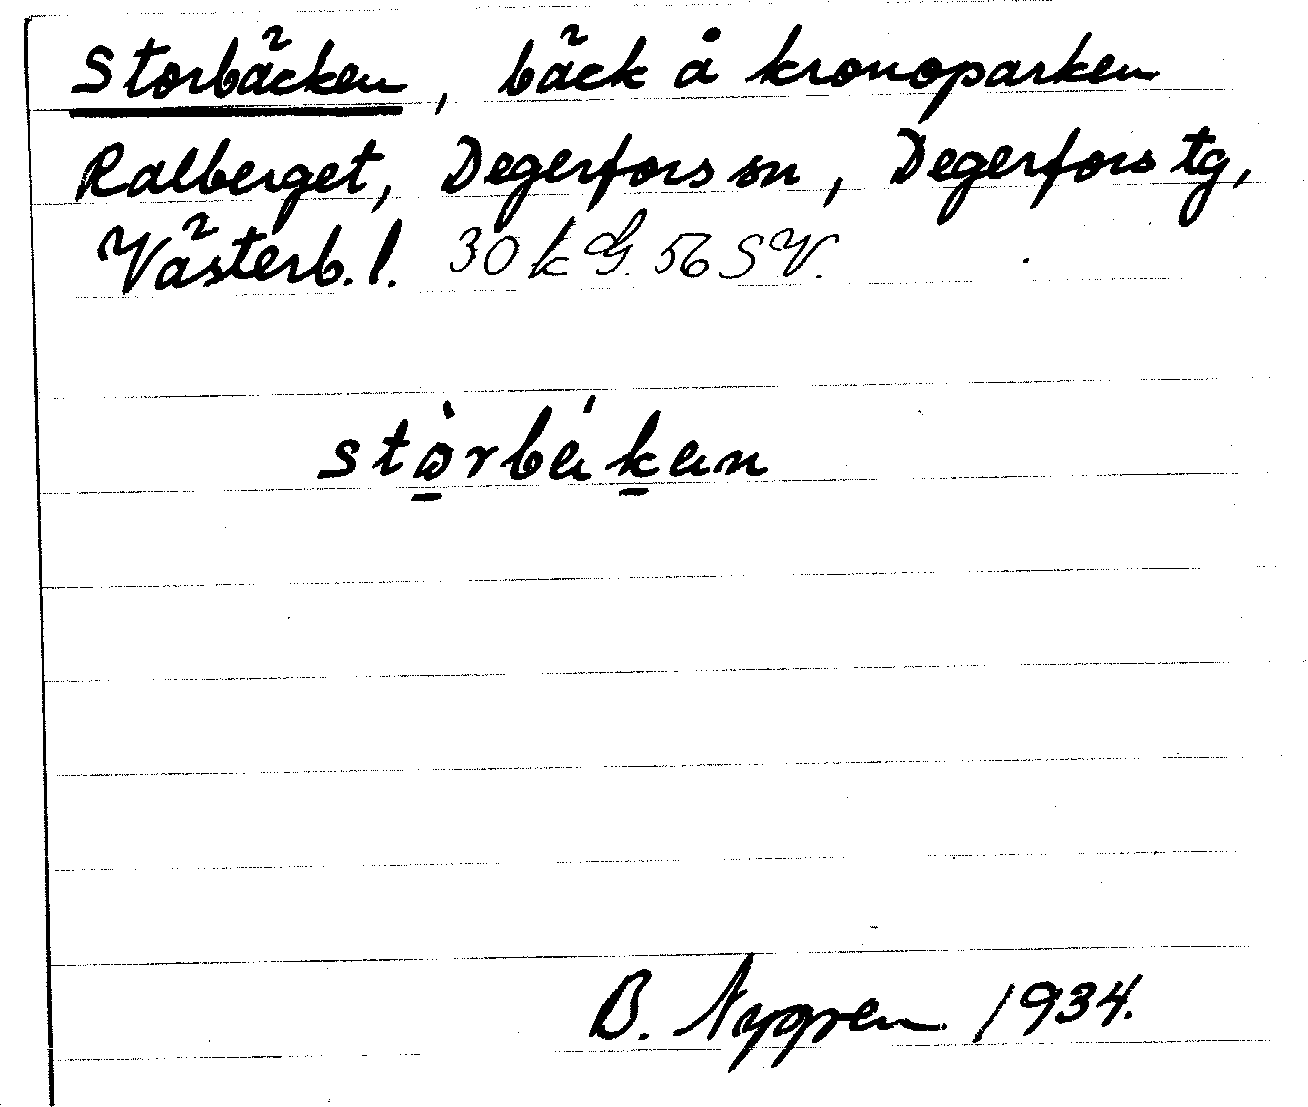 Storbäcken, bäck å kronoparken
Ralberget, Degerfors sn, Degerfors tg,
Västerb. l. 30 k G. 56 SV.
stòrbäkän
B. Nygren 1934.